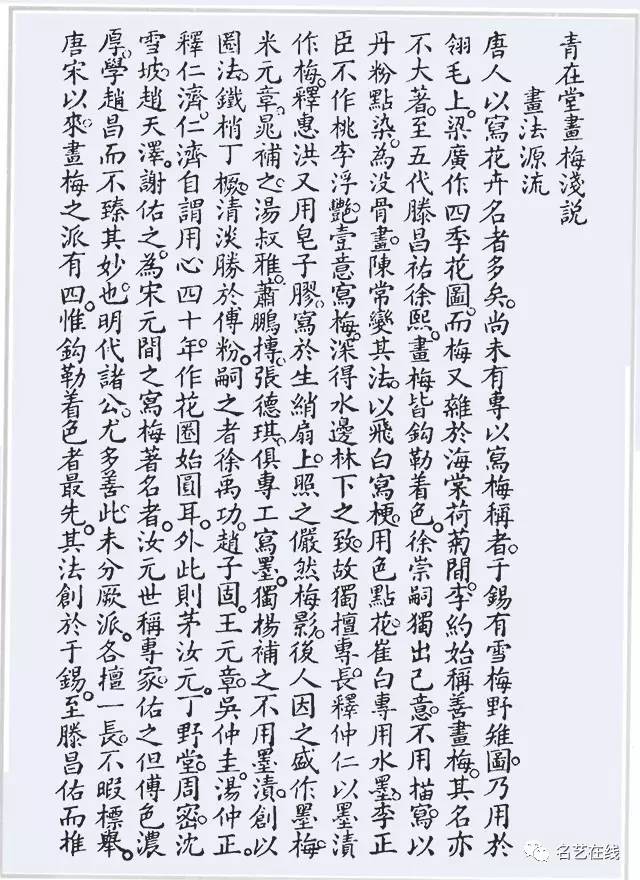 青在堂畫梅淺説
畫法源流
唐人以寫花卉名者多矣。尚未有專以寫梅稱者。于錫有雪梅野雉圖。乃用於
翎毛上。梁廣作四季花圖。而梅又雜於海棠荷菊間。李約始稱善畫梅。其名亦
不大著。至五代滕昌祐徐熙。畫梅皆鈎勒着色。徐崇嗣獨出己意。不用描寫。以
丹粉點染。為没骨畫。陳常變其法。以飛白寫梗。用色點花。崔白專用水墨。李正
臣不作桃李浮艷。壹意寫梅。深得水邊林下之致。故獨擅專長。釋仲仁以墨漬
作梅。釋惠洪又用皂子膠。寫於生綃扇上。照之儼然梅影。後人因之盛作墨梅。
米元章。晁補之。湯叔雅。蕭鵬摶。張德琪。俱專工寫墨。獨楊補之不用墨漬。創以
圈法。鐵梢丁橛。清淡勝於傅粉。嗣之者徐禹功。趙子固。王元章。吳仲圭。湯仲正。
釋仁濟。仁濟自謂用心四十年。作花圈始圓耳。外此則茅汝元。丁野堂。周密。沈
雪坡。趙天澤。謝佑之。為宋元間之寫梅著名者。汝元世稱專家。佑之但傅色濃
厚。學趙昌而不臻其妙也。明代諸公。尤多善此。未分厥派。各擅一長。不暇標舉。
唐宋以來。畫梅之派有四。惟鈎勒着色者最先。其法創於于錫。至滕昌佑而推
名艺在线